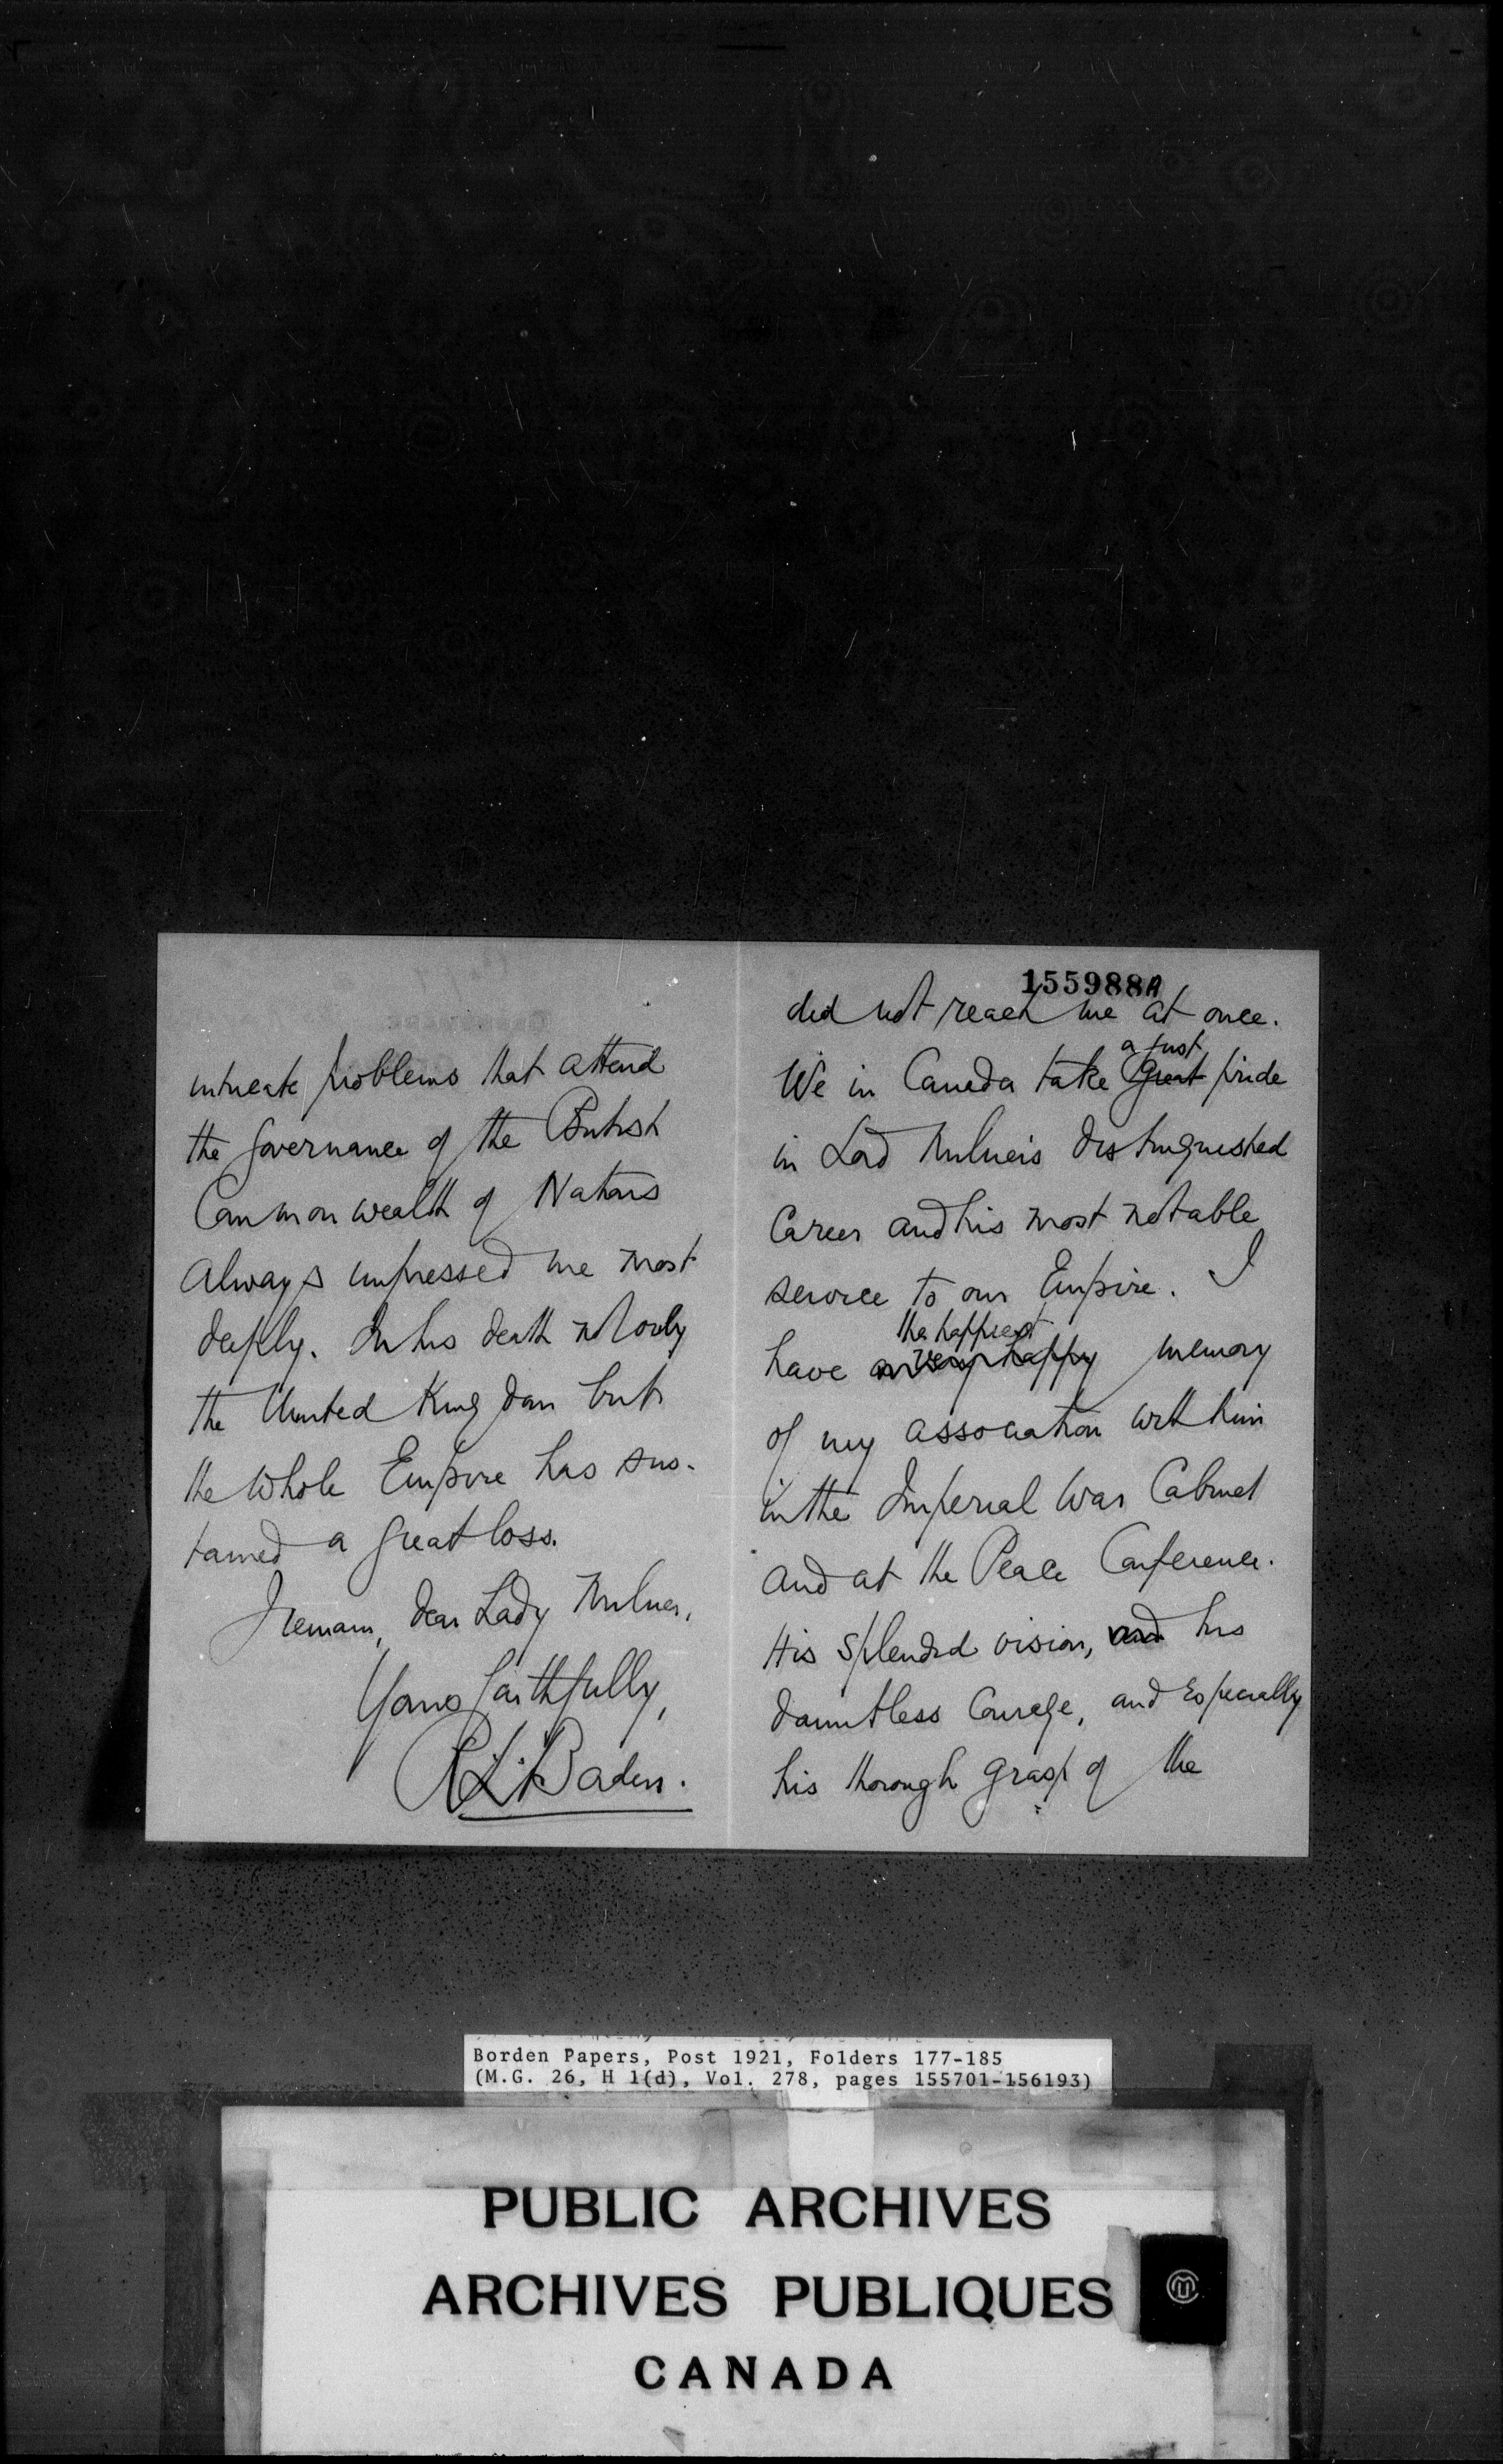 155988A
did not reach me at once.
a just
We in Canada take great pride
in Lord Milner's distinguished
Career and his most notable
service to our Empire. I
the happiest
have a very happy memory
of my association with him
in the Imperial War Cabinet
and at the Peace Conference.
His splendid vision, and his
dauntless Courage, and especially
his thorough grasp of the
intricate problems that attend
the governance of the British
Commonwealth of Nations
always impressed me most
deeply. In his death not only
the United Kingdom but
the whole Empire has sus-
tained a great loss.
I remain, dear Lady Milner,
Yours faithfully,
R.L. Borden.
Borden Papers, Post 1921, Folders 177-185
(M.G. 26, H 1(d), Vol. 278, pages 155701-156193)
PUBLIC ARCHIVES
ARCHIVES PUBLIQUES
CANADA